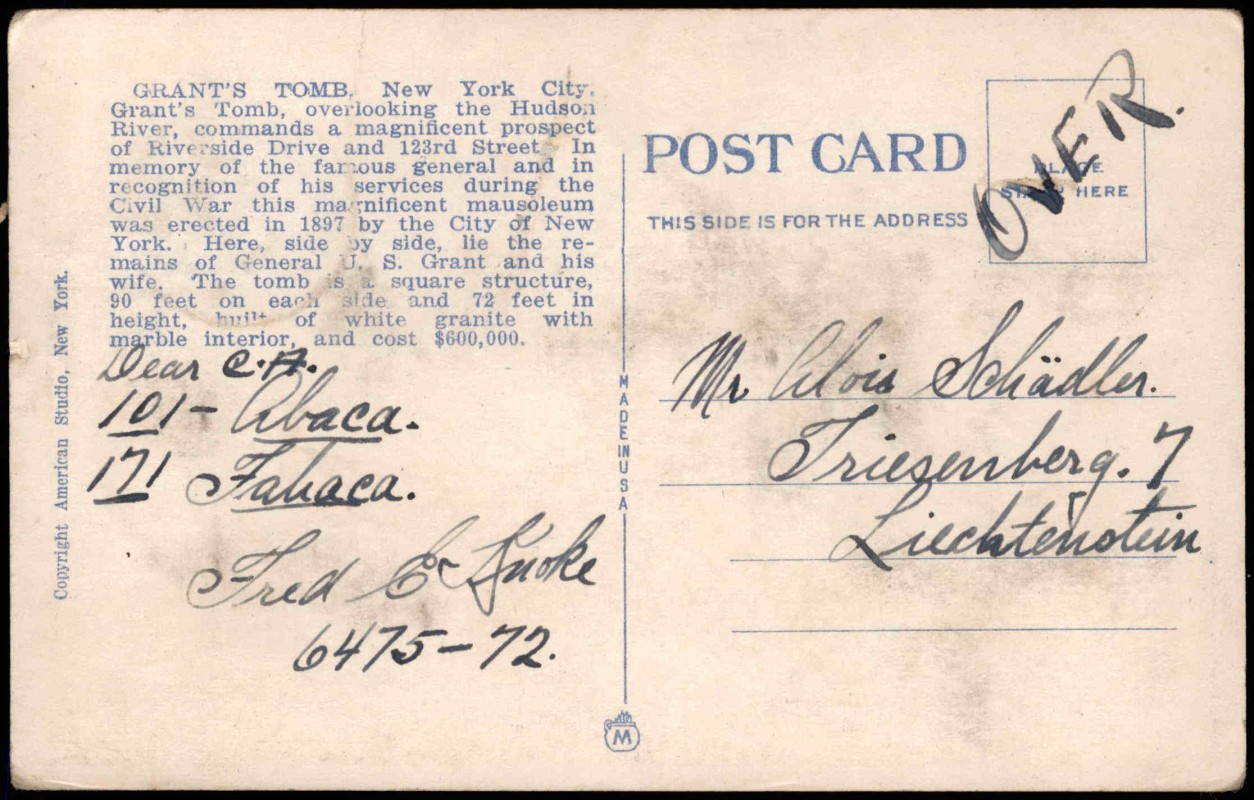 GRANT'S TOMB, New York City.
Grant's Tomb, overlooking the Hudson
River, commands a magnificent prospect
of Riverside Drive and 123rd Street. In
memory of the famous general and in
recognition of his services during the
Civil War this magnificent mausoleum
was erected in 1897 by the City of New
York. Here, side by side, lie the re-
mains of General U. S. Grant and his
wife. The tomb is a square structure,
90 feet on each side and 72 feet in
height, built of white granite with
marble interior, and cost $600,000.
Dear C.A.
101- Abaca.
171 Fabaca.
Fred E
6475-72.
Copyright American Studio, New York.
MADE IN USA
M
POST CARD
THIS SIDE IS FOR THE ADDRESS
PLACE
STAMP HERE
OVER.
Mr Alois Schädler.
Triesenberg. 7
Liechtenstein